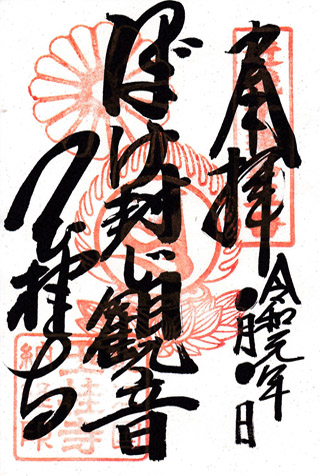 奉拝
令和元年
●月●日
ぼけ封じ観音
玉桂寺